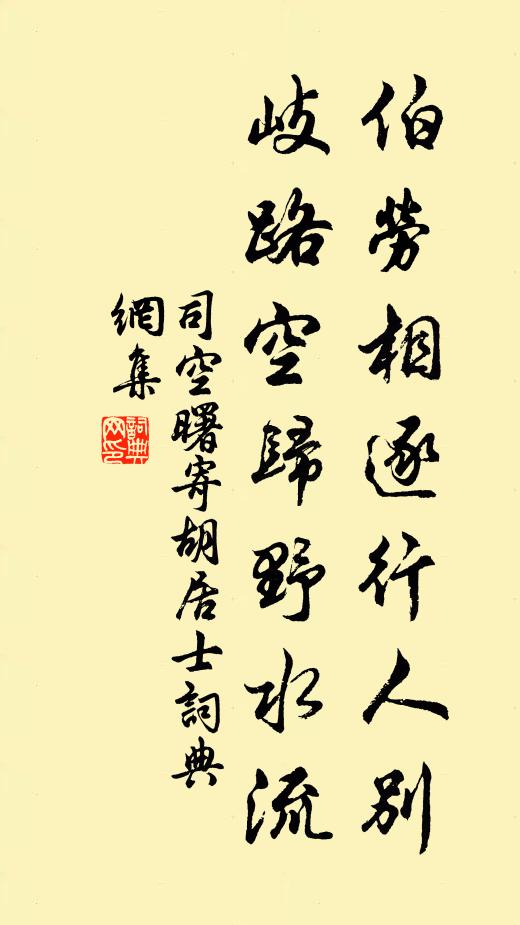 伯勞相逐行人別
岐路空歸野水流
司空曙寄胡居士詞典
網集
詞典
网印